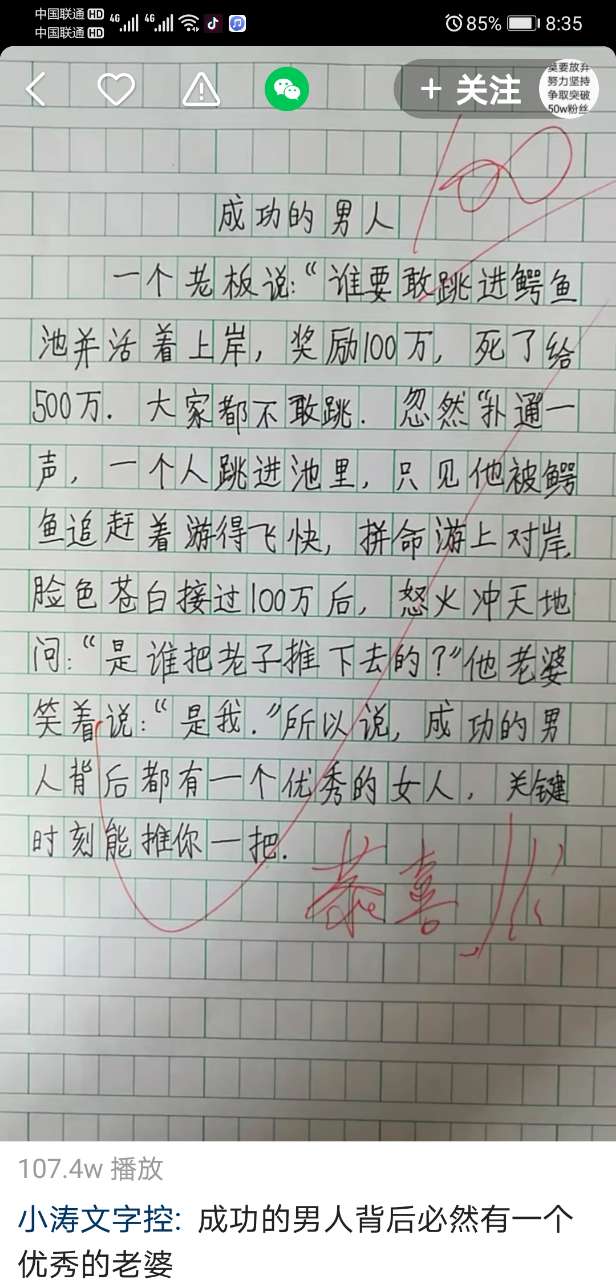 中国联通 HD 4G 4G 85% 8:35
中国联通 HD
+ 关注
莫要放弃
努力坚持
争取突破
50w粉丝
100
成功的男人
一个老板说:“谁要敢跳进鳄鱼
池并活着上岸，奖励100万，死了给
500万. 大家都不敢跳. 忽然“扑通一
声，一个人跳进池里，只见他被鳄
鱼追赶着游得飞快，拼命游上对岸,
脸色苍白接过100万后，怒火冲天地
问:“是谁把老子推下去的?”他老婆
笑着说:“是我.”所以说，成功的男
人背后都有一个优秀的女人，关键
时刻能推你一把.
恭喜
107.4w 播放
小涛文字控: 成功的男人背后必然有一个
优秀的老婆